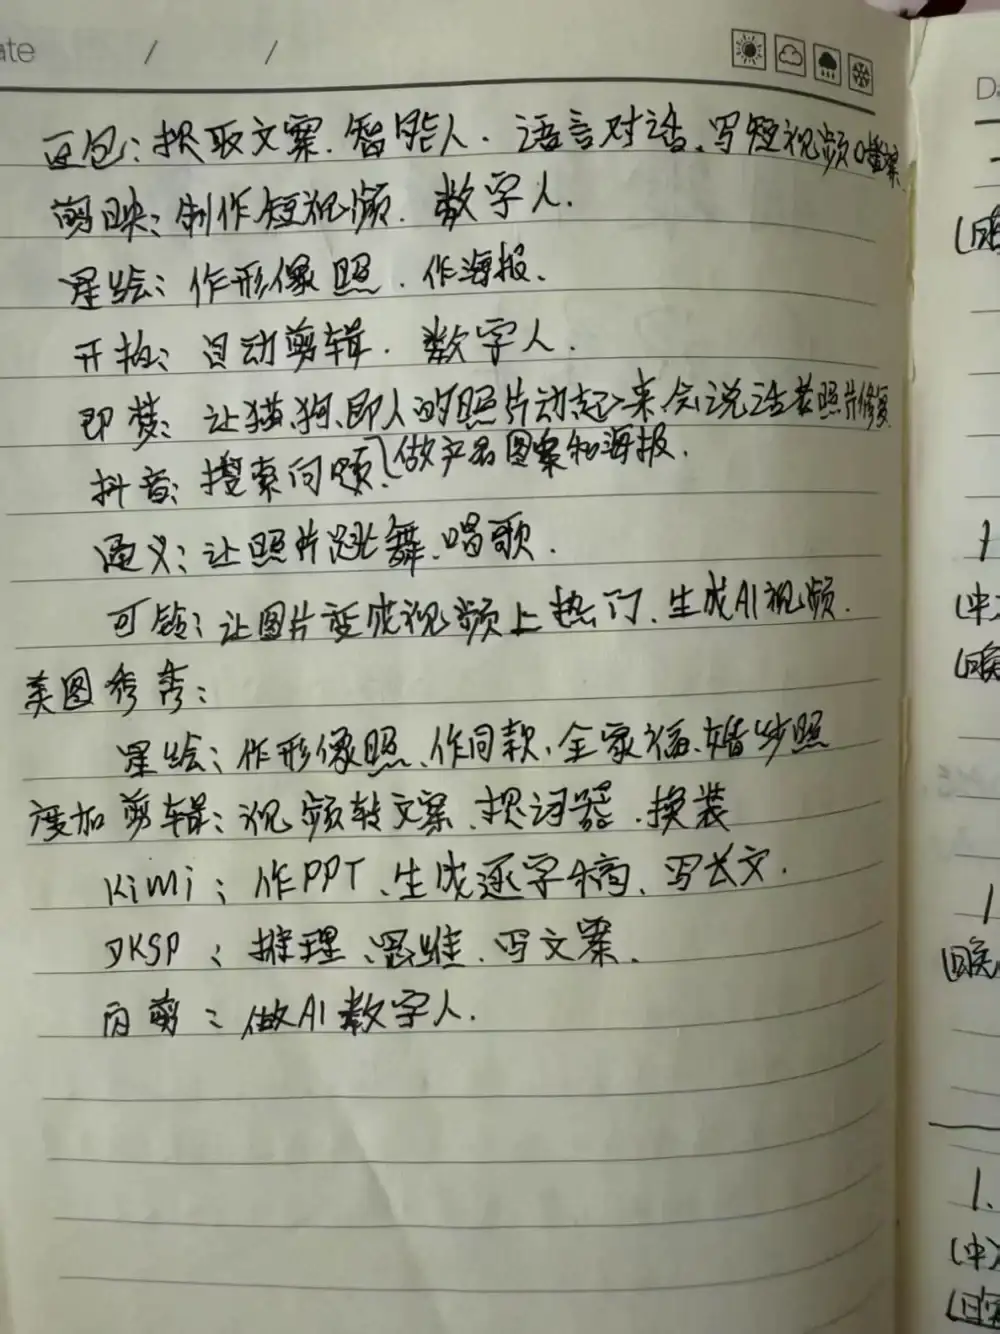 ate / /
豆包：提取文案、智能人、语言对话、写短视频口播案
剪映：制作短视频、数字人.
星绘：作形像照、作海报.
开拍：自动剪辑、数字人.
即梦：让猫、狗、即人的照片动起来、会说话老照片修复
做产品图案和海报.
抖音：搜索问题.
通义：让照片跳舞、唱歌.
可铃：让图片变成视频上热门、生成AI视频.
美图秀秀：
星绘：作形像照、作同款、全家福、婚步照
度加剪辑：视频转文案、提词器、换装
KiMi：作PPT、生成逐字稿、写长文.
DKSP：推理、思维、写文案.
闪剪：做AI数字人.